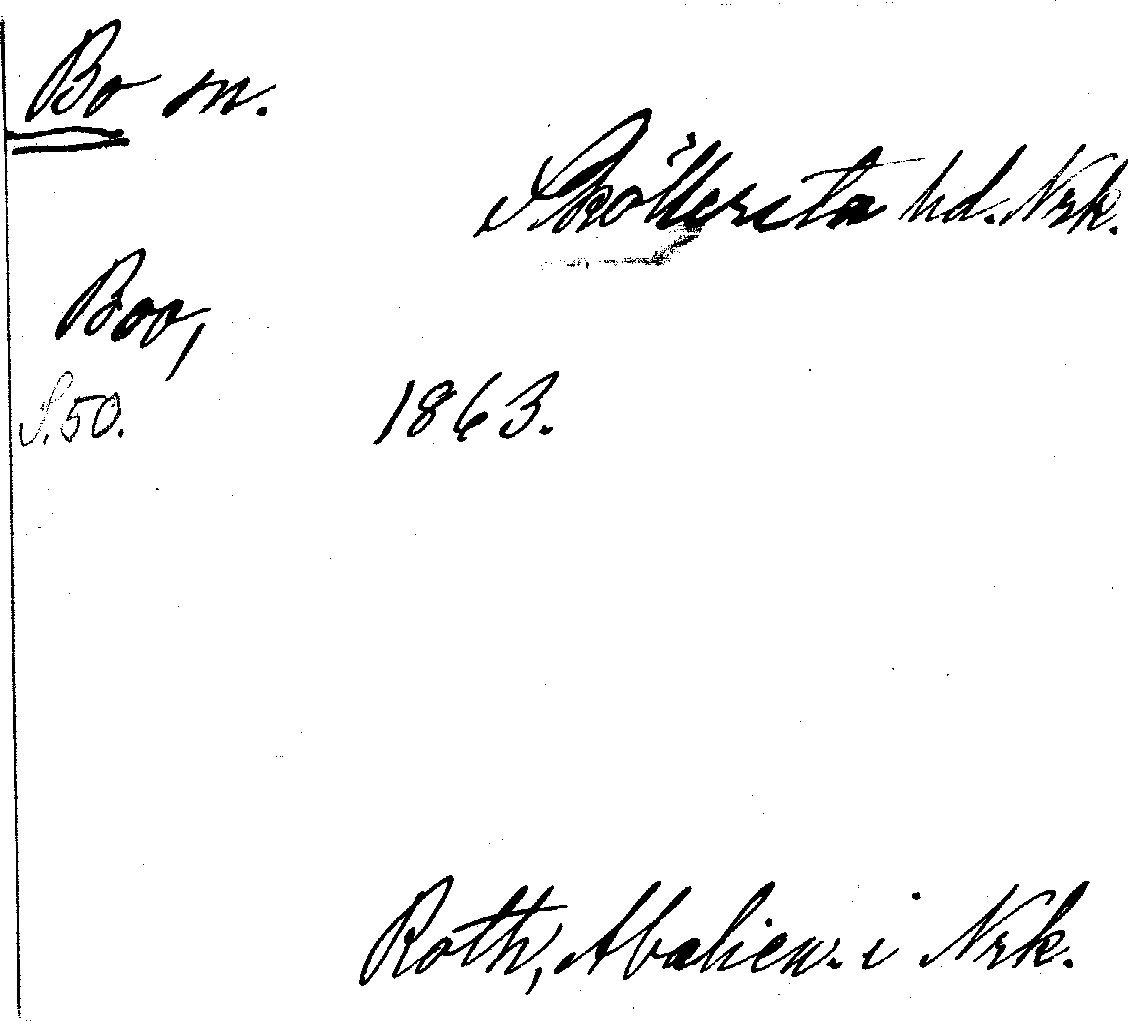 Bo sn.
Sköllersta hd. Nrk.
Boo,
S. 50. 1863.
Roth, Abalien. i Nrk.